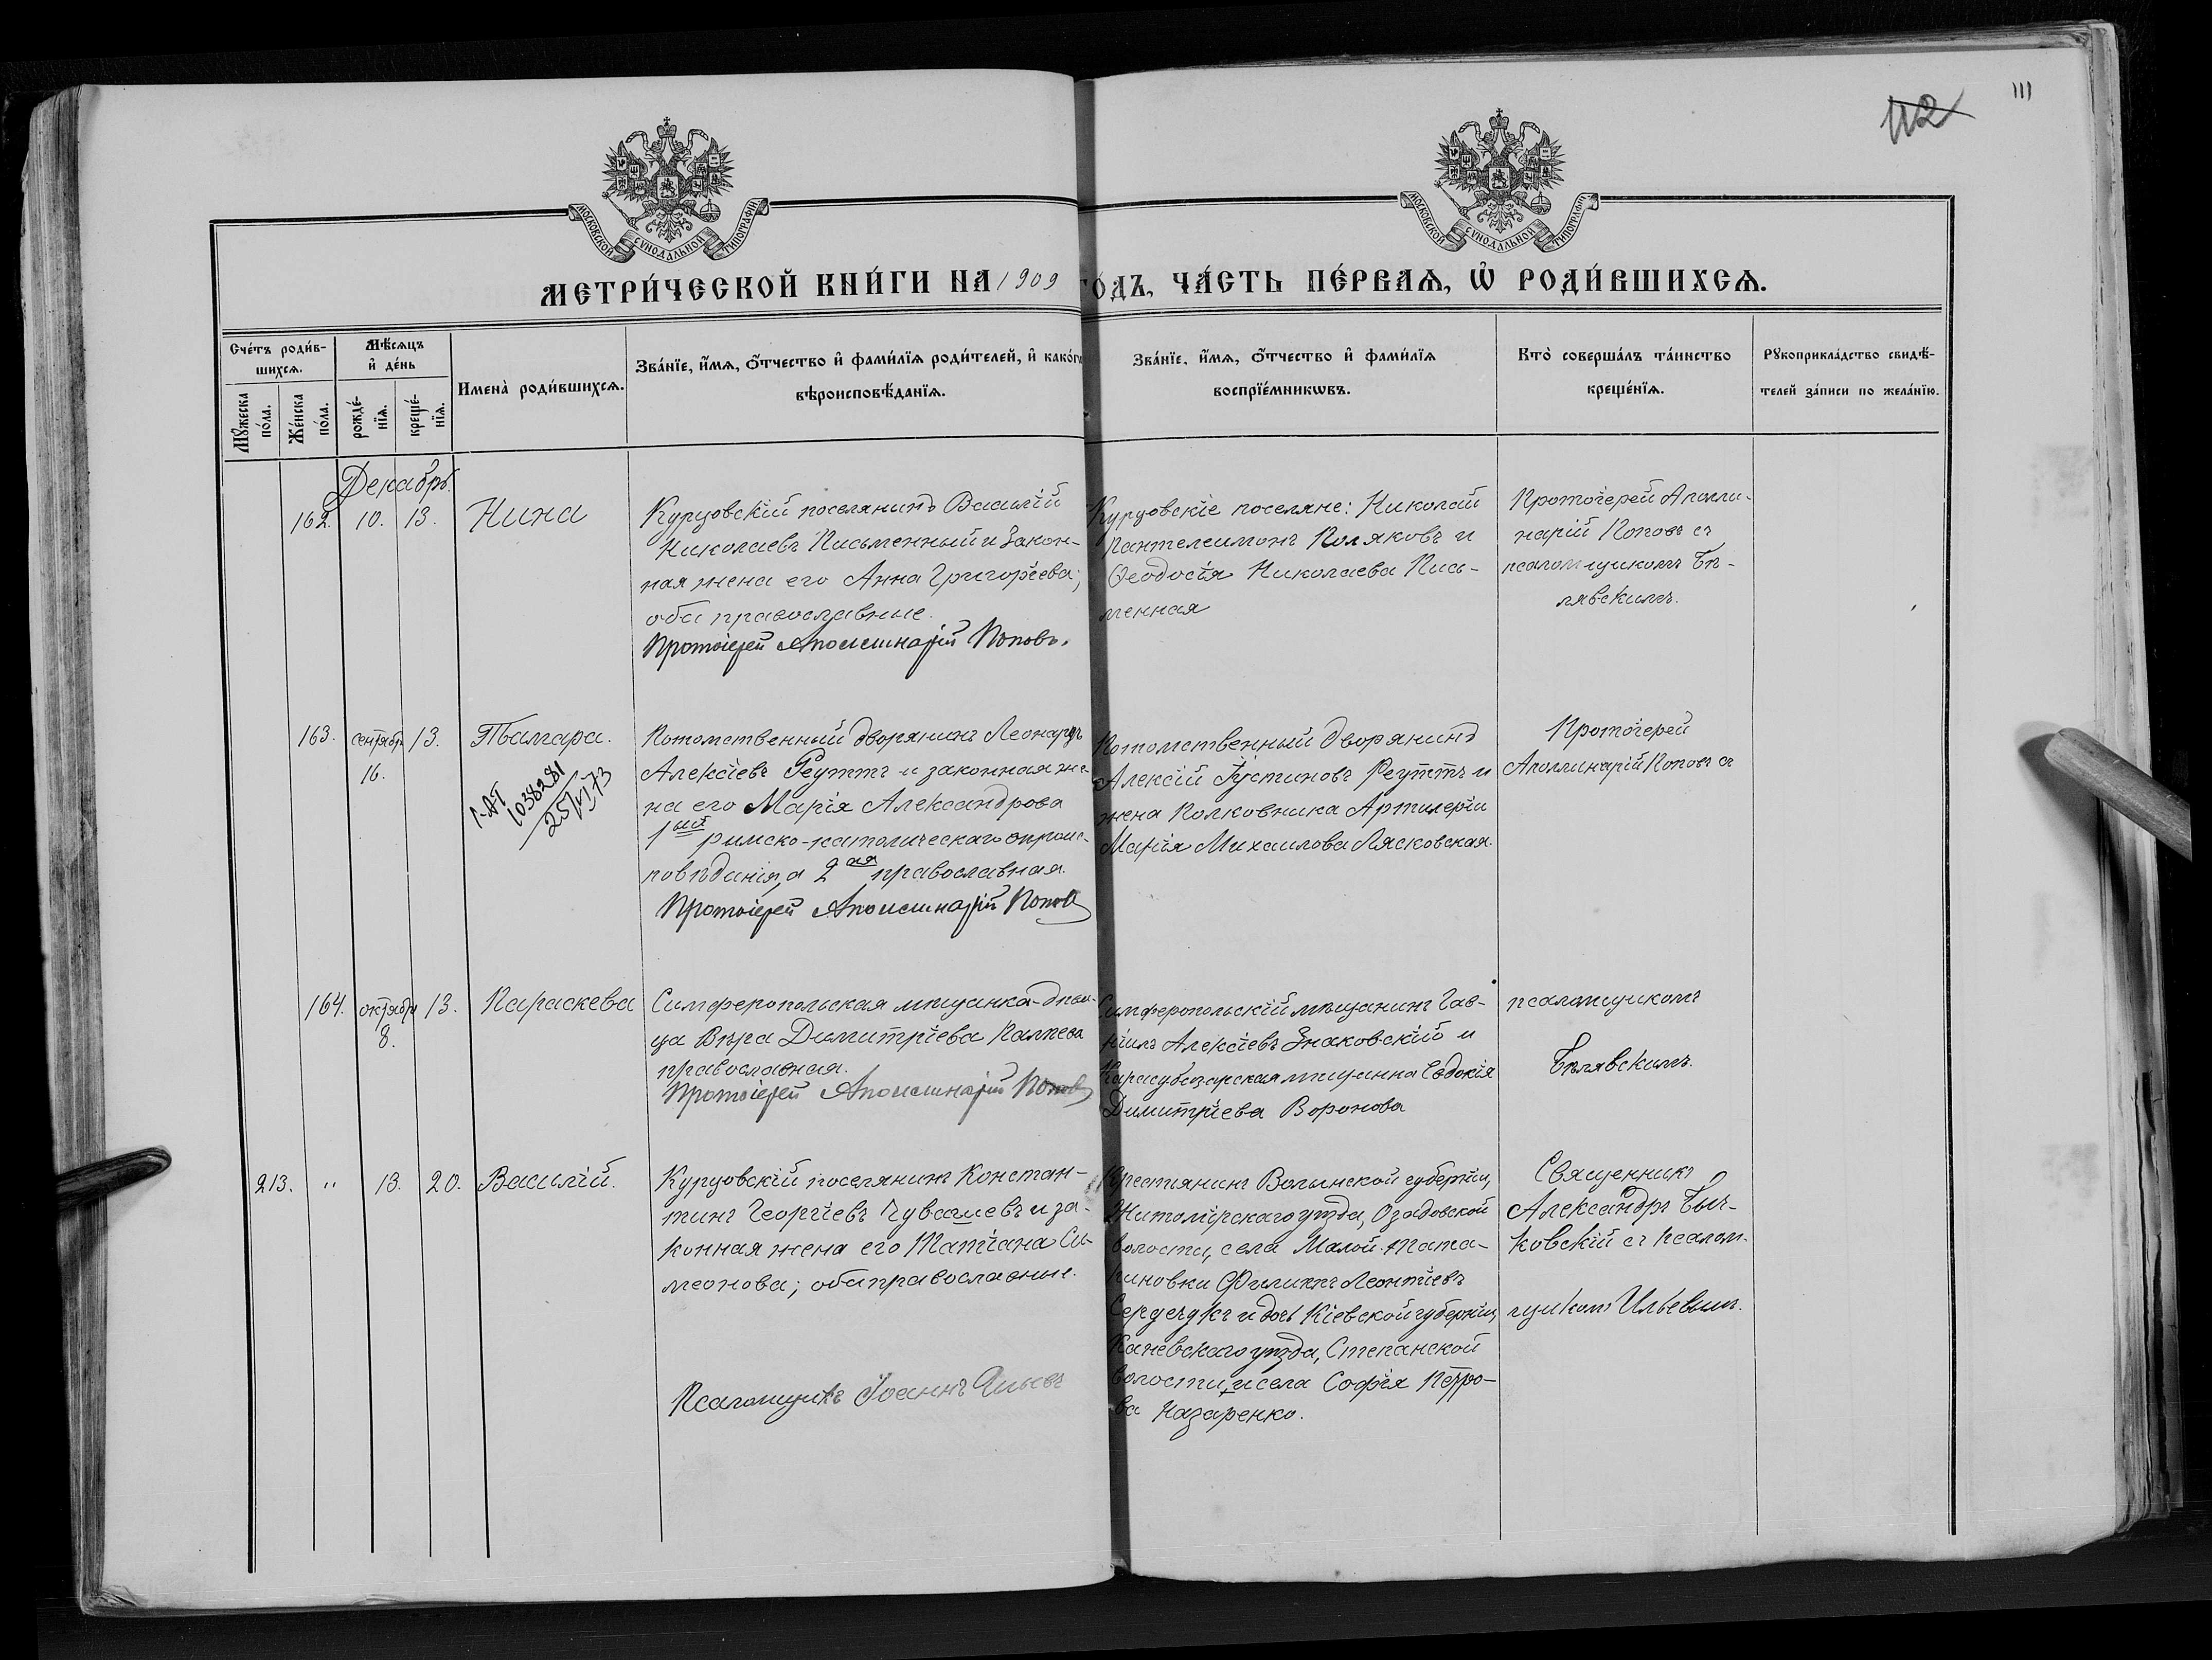 112
111
МОСКОВСКОЙ СѴНОДАЛЬНОЙ ТИПОГРАФІИ
МОСКОВСКОЙ СѴНОДАЛЬНОЙ ТИПОГРАФІИ
МЕТРИ́ЧЕСКОЙ КНИ́ГИ НА 1909 ГО́ДЪ, ЧА́СТЬ ПЕ́РВАѦ, Ѡ҆ РОДИ́ВШИХСѦ.
Сче́тъ роди́в-
шихсѧ.
Мꙋ́жеска
по́ла.
Же́нска
по́ла.
Мѣ́сѧцъ
и҆ де́нь
рожде́-
нїѧ.
креще́-
нїѧ.
Имена̀ роди́вшихсѧ.
Зва́нїе, и҆́мѧ, ѻ҆́тчество и҆ фами́лїѧ роди́телей, и҆ како́гѡ
вѣроисповѣ́данїѧ.
Зва́нїе, и҆́мѧ, ѻ҆́тчество и҆ фами́лїѧ
воспрїе́мникѡвъ.
Кто̀ соверша́лъ та́инство
креще́нїѧ.
Рꙋкоприкла́дство свидѣ́-
телей за́писи по жела́нїю.
Декабрь.
162. 10. 13. Нина
Курцовскій поселянинъ Василій
Николаевъ Письменный и закон-
ная жена его Анна Григорьева;
оба православные.
Протоіерей Аполлинарій Поповъ.
Курцовскіе поселяне: Николай
Пантелеимонъ Поляковъ и
Ѳеодосія Николаева Пись-
менная
Протоіерей Аполли-
нарій Поповъ съ
псаломщикомъ Бѣ-
лявскимъ.
163. сентябрь 13. Тамара.
16.
1038281
Потомственный дворянинъ Леонардъ
Алексіевъ Реуттъ и законная же-
на его Марія Александрова
1ый римско-католическаго вѣроис-
повѣданія, а 2ая православная.
Протоіерей Аполлинарій Поповъ
Потомственный дворянинъ
Алексій Іустиновъ Реуттъ и
жена Полковника Артилеріи
Марія Михаилова Лясковская.
Протоіерей
Аполлинарій Поповъ съ
164. октября 13. Параскева
8.
Симферопольская мѣщанка-дѣви-
ца Вѣра Димитріева
православная.
Протоіерей Аполлинарій Поповъ
Симферопольскій мѣщанинъ Гав-
ріилъ Алексіевъ Знаковскій и
Карасубазарская мѣщанка Евдокія
Димитріева Воронова
псаломщикомъ
Бѣлявскимъ.
213. " 13. 20. Василій.
Курцовскій поселянинъ Констан-
тинъ Георгіевъ Чувашевъ и за-
конная жена его Татіана Си-
меонова; оба православные.
Псаломщикъ Іоаннъ Ильевъ
Крестянинъ Волынской губерніи,
Житомірскаго уѣзда, Озадовской
волости, села Малой Тата-
риновки Филиппъ Леонтіевъ
Сердечукъ и дочь Кіевской губерніи,
Каневскаго уѣзда, Степанской
волости и села Софія Петро-
ва Назаренко.
Священникъ
Александръ Быч-
ковскій съ псалом-
щикомъ Ильевымъ.